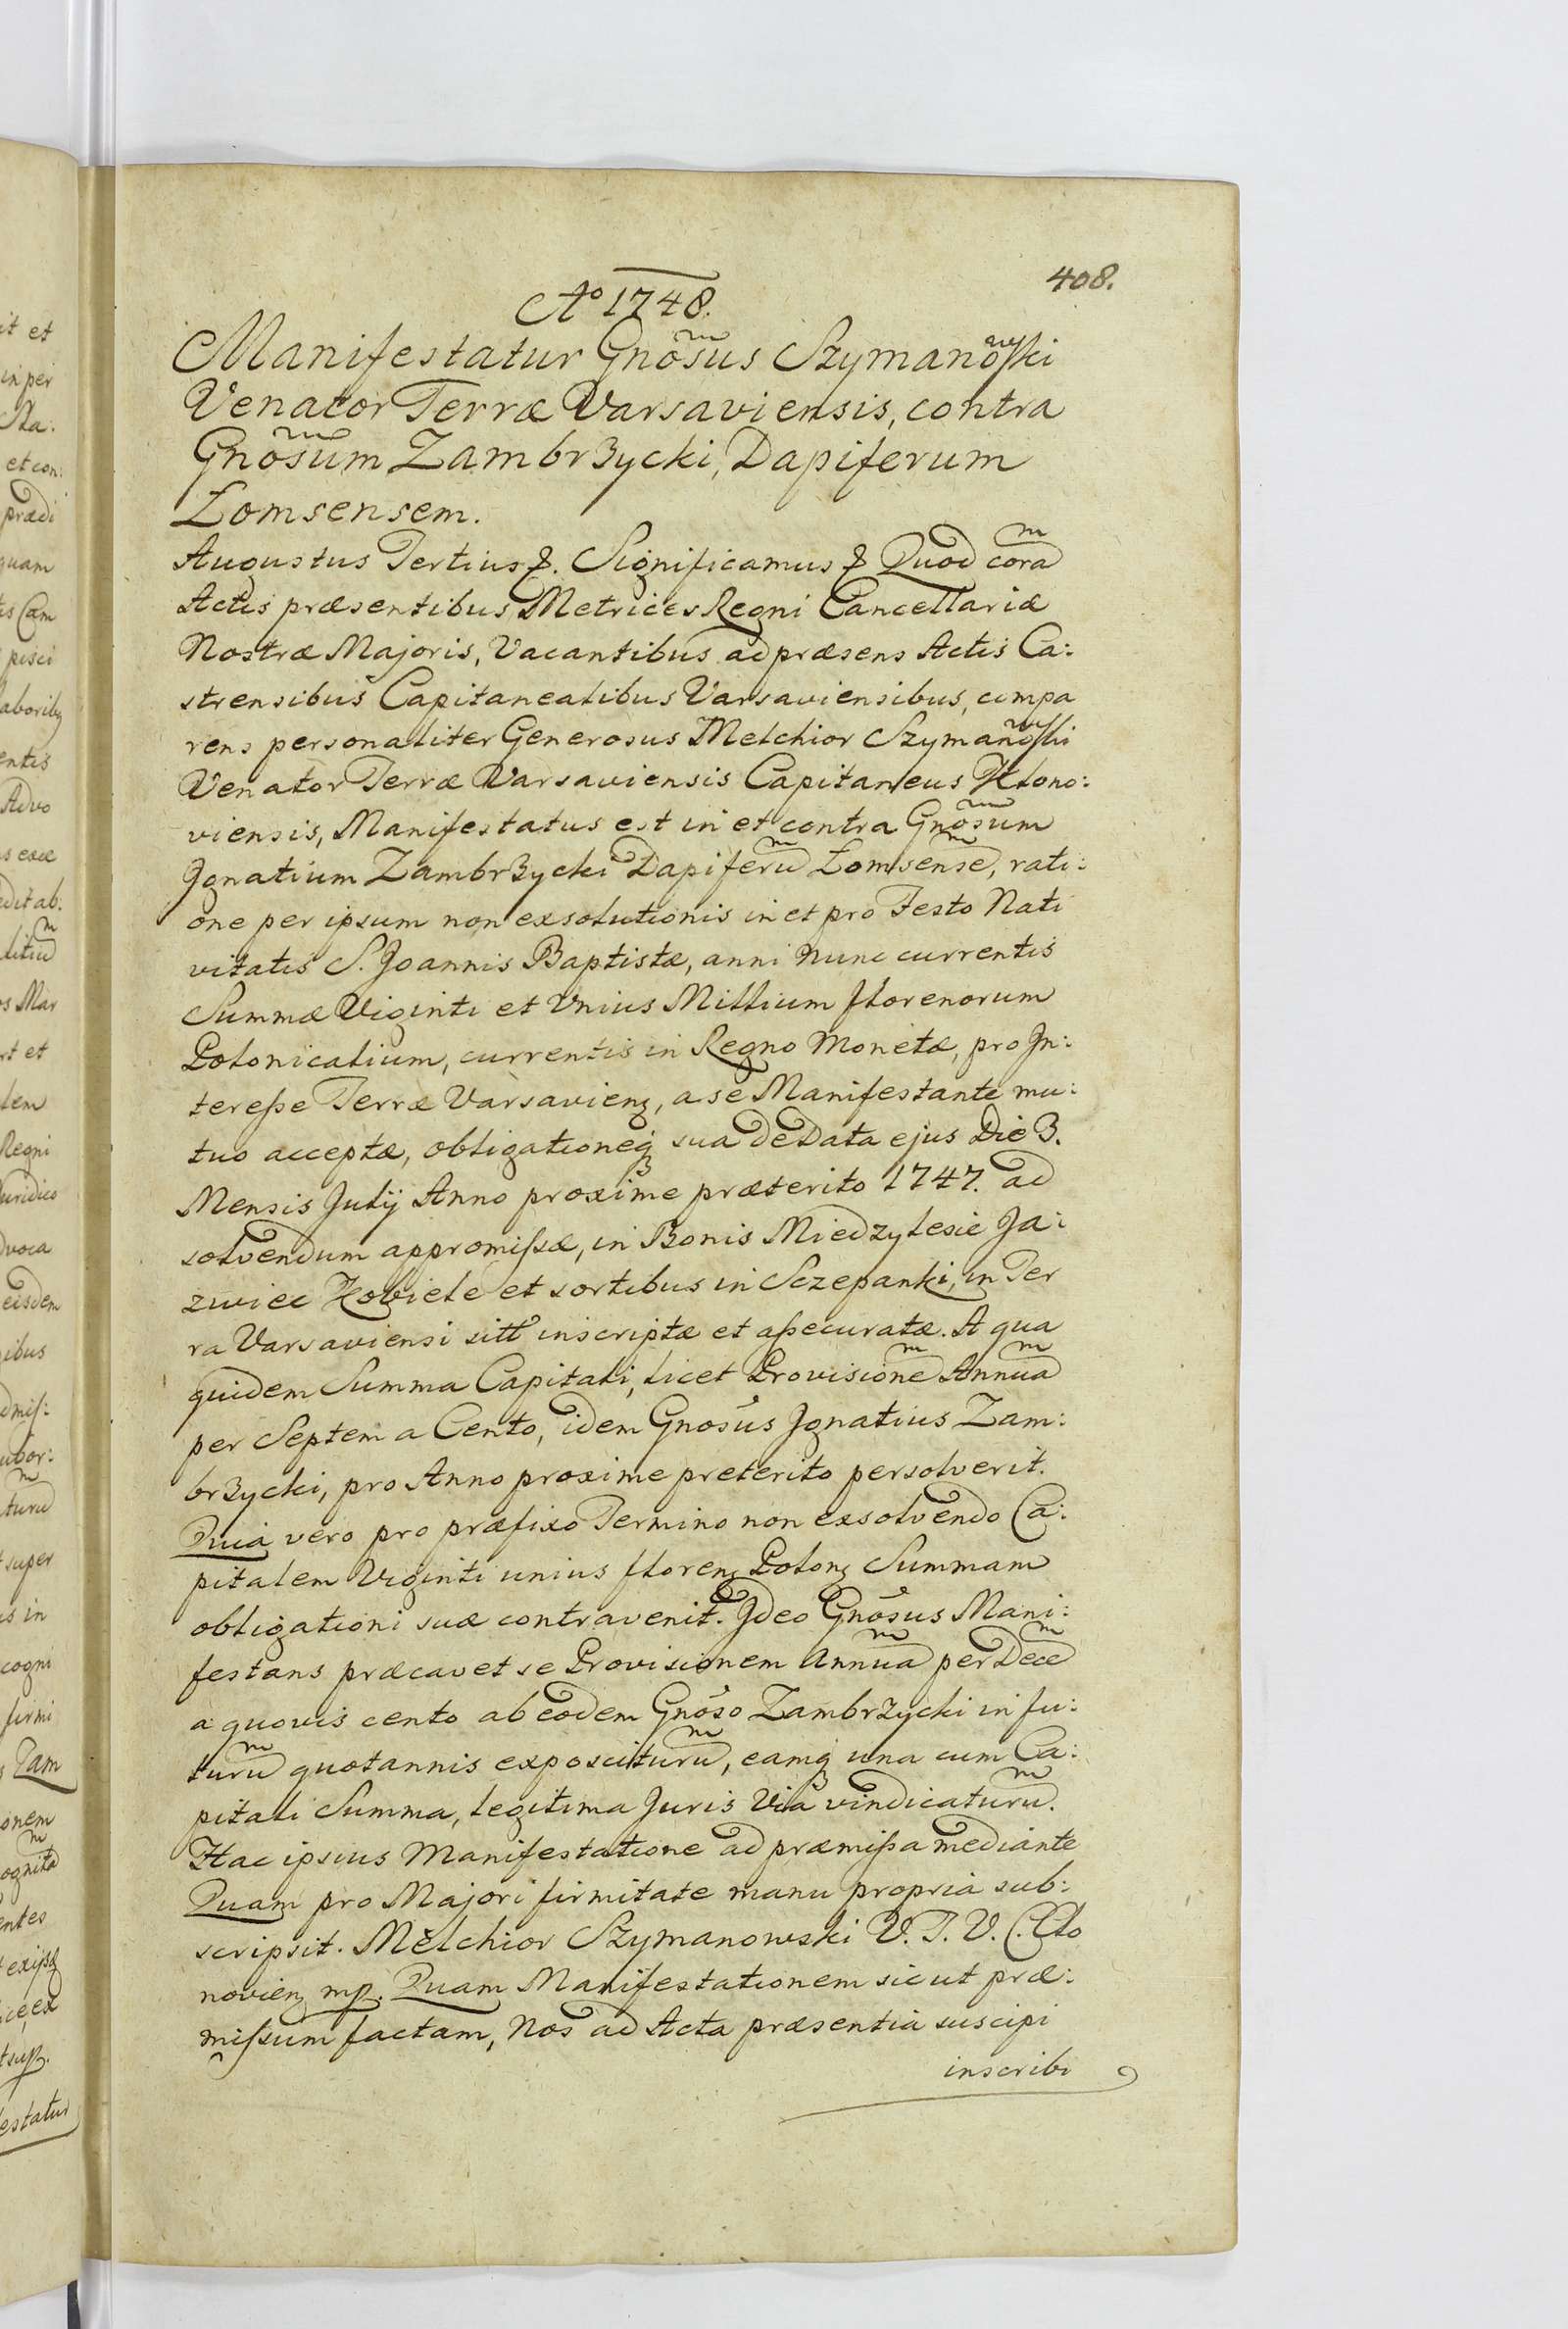 408.
Aº 1748.
Manifestatur Gnosus Szymanowski
Venator Terræ Varsaviensis, contra
Gnosum Zambrzycki, Dapiferum
Łomsensem.
Augustus Tertius &. Significamus & Quod coram
Actis præsentibus Metrices Regni Cancellariæ
Nostræ Majoris, Vacantibus ad præsens Actis Ca:
strensibus Capitanealibus Varsaviensibus, compa
rens personaliter Generosus Melchior Szymanowski
Venator Terræ Varsaviensis Capitaneus Klono:
viensis, Manifestatus est in et contra Gnosum
Ignatium Zambrzycki Dapiferum Łomsensem, rati:
one per ipsum non exsolutionis in et pro Festo Nati
vitatis S. Joannis Baptistæ, anni nunc currentis
Summæ Viginti et Unius Millium florenorum
Polonicalium, currentis in Regno Monetæ, pro In:
teresse Terræ Varsavienq, a se Manifestante mu:
tuo acceptæ, obligationeq sua de Data ejus Die 3.
Mensis Julij Anno proxime præterito 1747. ad
solvendum appromissæ, in Bonis Miedzylesie Ja:
zwiec Kobiele et sortibus in Sczepanki, in Ter
ra Varsaviensi sitt inscriptæ et assecuratæ. A qua
quidem Summa Capitali, licet Provisionem Annuam
per Septem a Cento, idem Gnosus Ignatius Zam:
brzycki, pro Anno proxime preterito persolverit.
Quia vero pro præfixo Termino non exsolvendo Ca:
pitalem Viginti unius florenq Polonq Summam
obligationi suæ contravenit. Ideo Gnosus Mani:
festans præcavet se Provisionem Annuam per Decem
a quovis cento ab eodem Gnoso Zambrzycki in fu:
turum quotannis exposciturum, eamq una cum Ca:
pitali Summa, legitima Juris Via vindicaturum.
Hac ipsius Manifestatione ad præmissa mediante
Quam pro Majori firmitate manu propria sub:
scripsit. Melchior Szymanowski V. T. V. C. Clo
novienq mp. Quam Manifestationem sicut præ:
missum factam, Nos ad Acta præsentia suscipi
inscribi